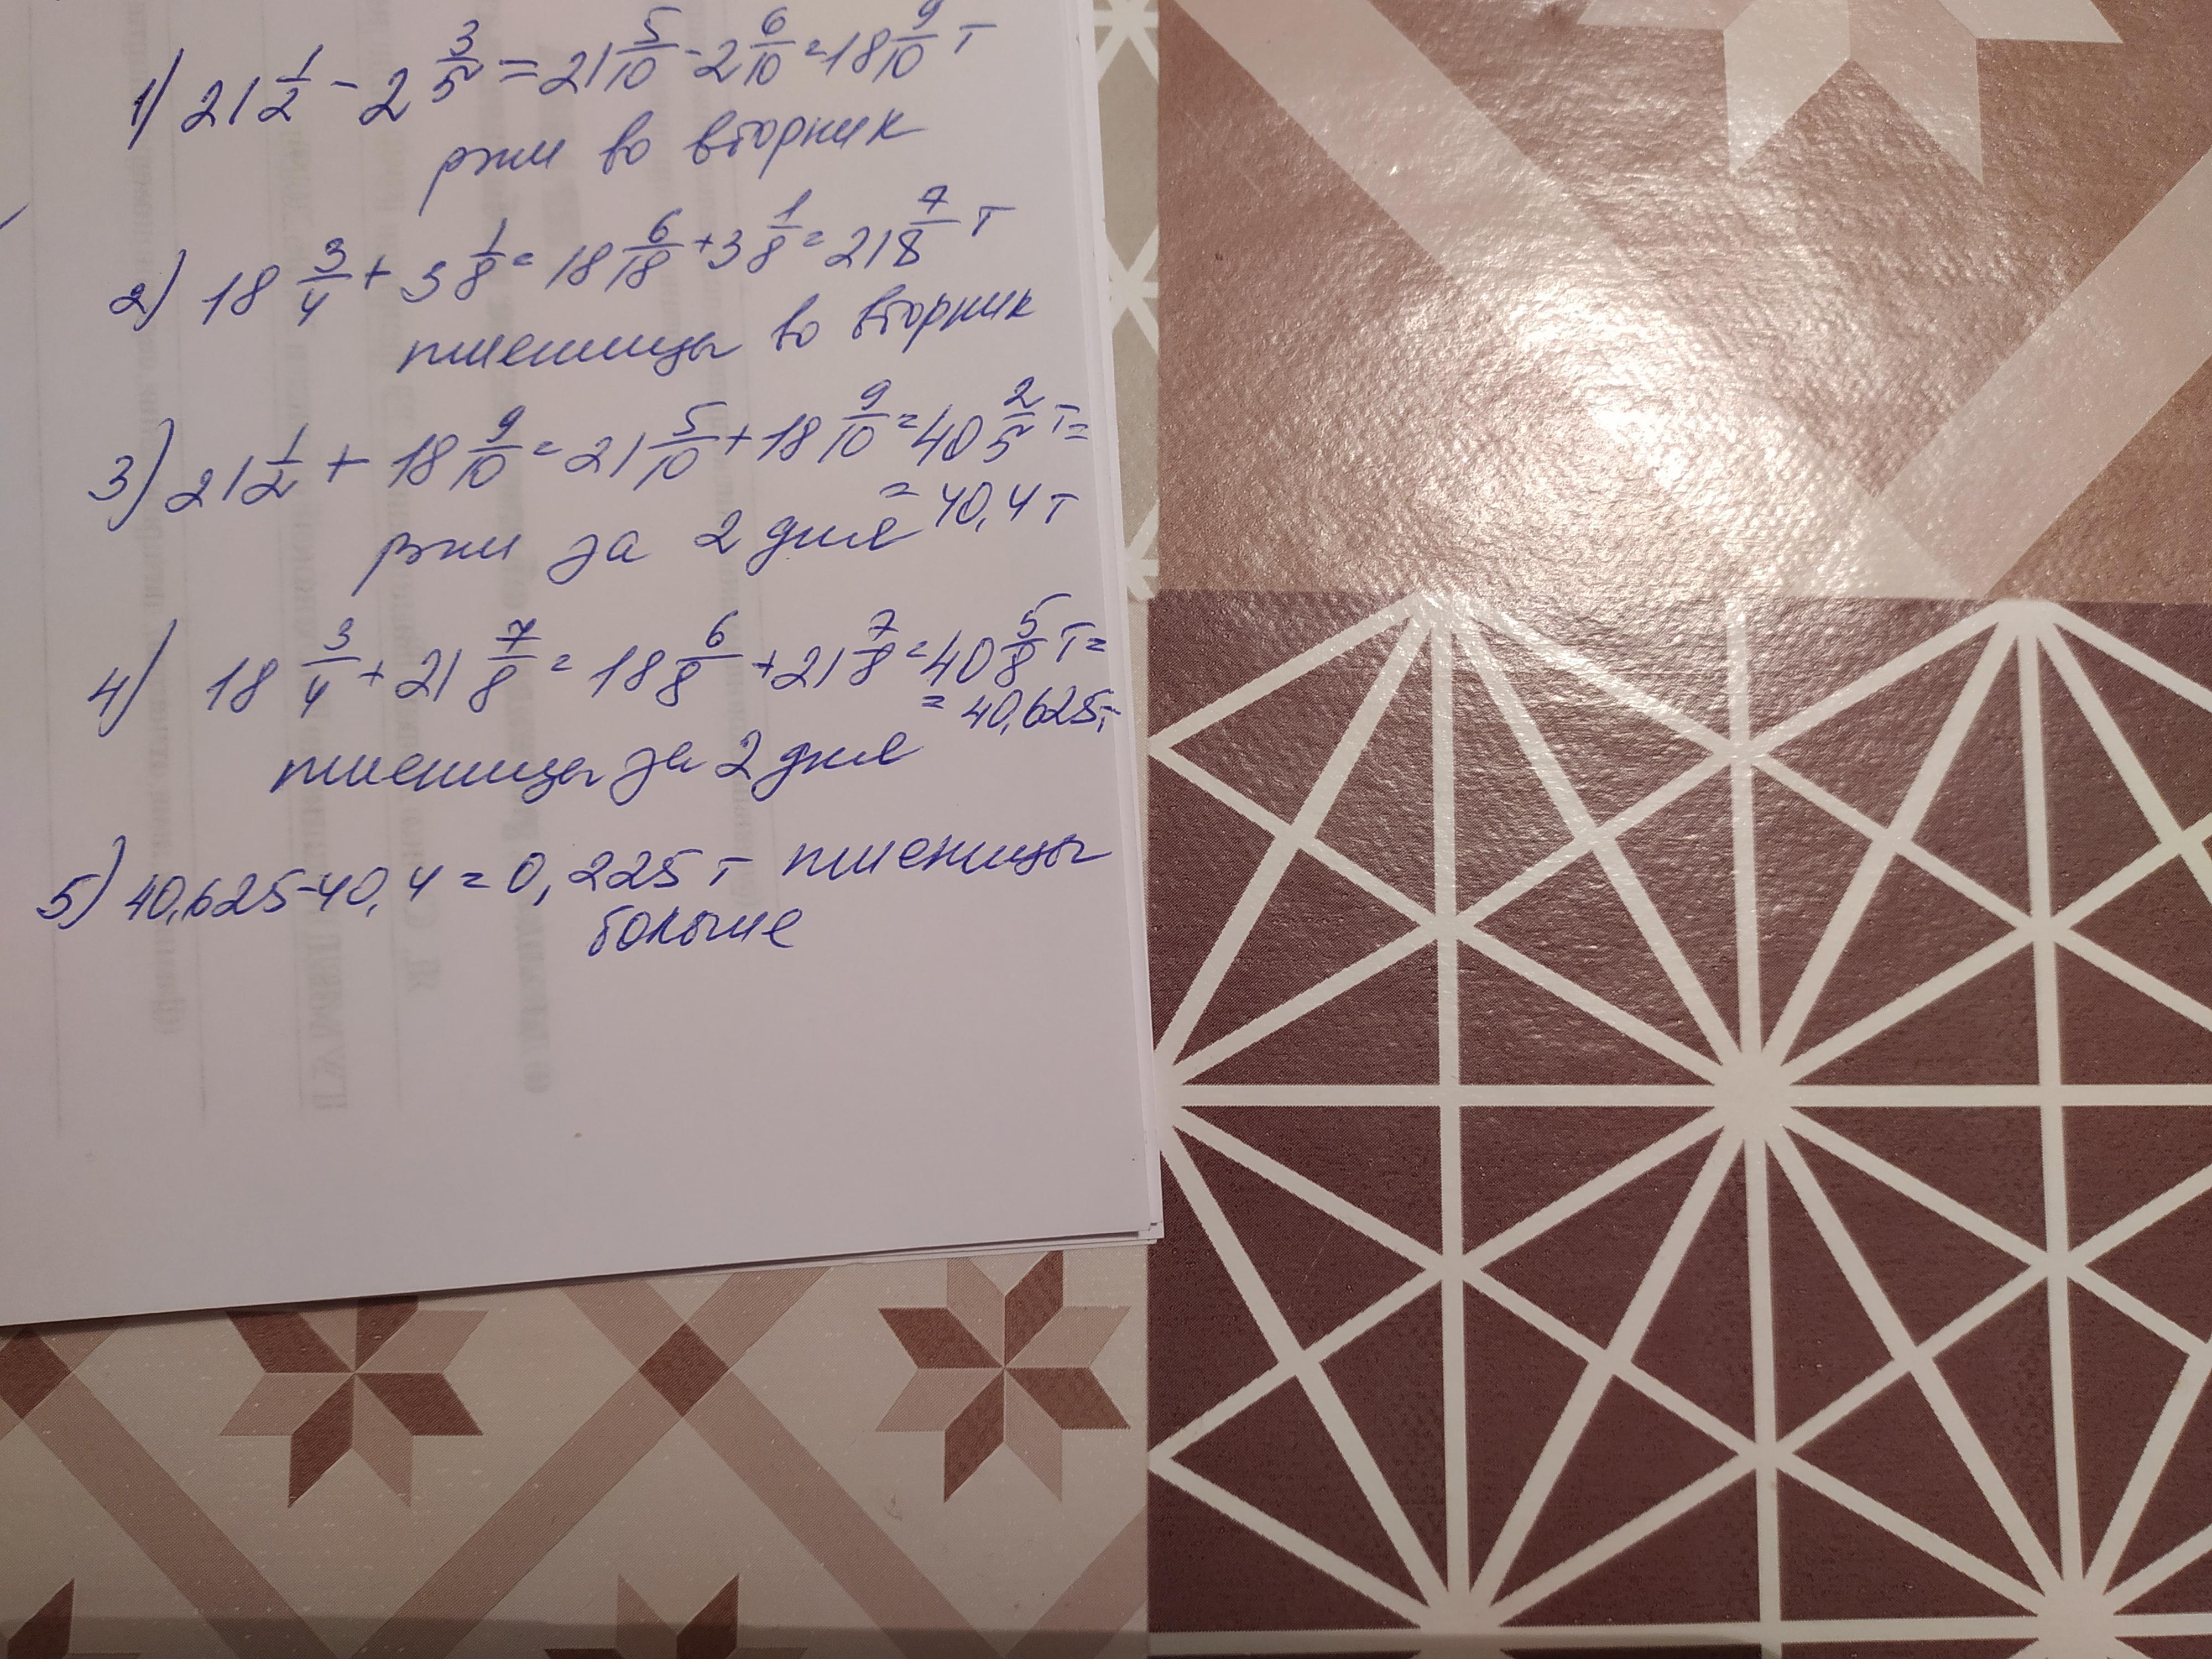 1) 21 1/2 - 2 3/5 = 21 5/10 - 2 6/10 = 18 9/10 т
ржи во вторник
2) 18 3/4 + 3 1/8 = 18 6/18 + 3 1/8 = 21 7/8 т
пшеницы во вторник
3) 21 1/2 + 18 9/10 = 21 5/10 + 18 9/10 = 40 2/5 т =
= 40,4 т
ржи за 2 дня
4) 18 3/4 + 21 7/8 = 18 6/8 + 21 7/8 = 40 5/8 т =
= 40,625 т
пшеницы за 2 дня
5) 40,625-40,4 = 0,225 т пшеницы
больше